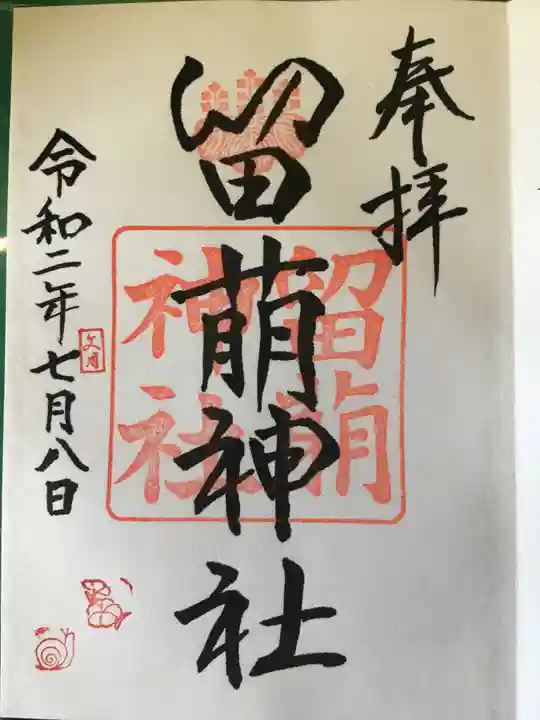 奉拝
留萌神社
留萌
神社
令和二年七月八日
文月